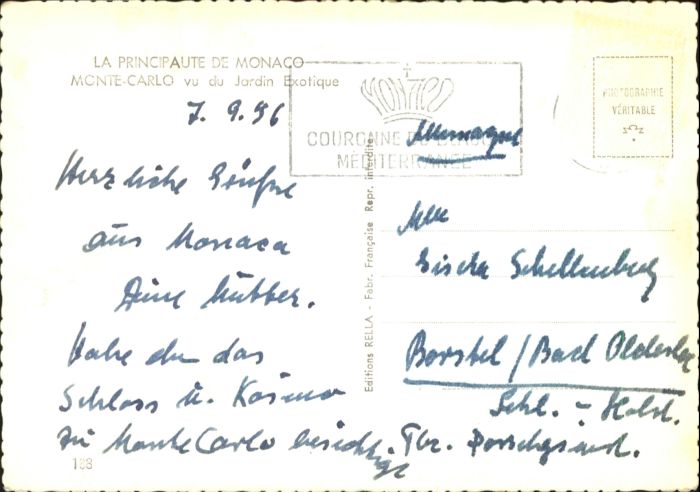 LA PRINCIPAUTE DE MONACO
MONTE-CARLO vu du Jardin Exotique
7. 9. 56
Herzliche Grüße
aus Monaco
Deine Mutter.
Habe das
Schloss u. Kasino
zu Monte Carlo besichtigt.
188
Editions RELLA - Fabr. Française Repr. interdite
MONACO
COURONNE
MEDITERRANEE
PHOTOGRAPHIE
VÉRITABLE
Allemagne
Schellenberg
Borstel / Bad Oldesloe
Schl. - Holst.